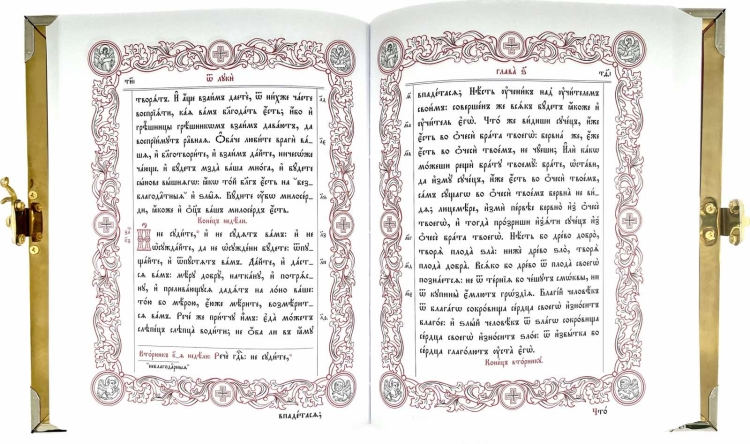 ѿ лꙋкѝ
творѧ́тъ. И҆ а҆́ще взаи́мъ даетѐ, ѿ ни́хже ча́ете
воспрїѧ́ти, ка́ѧ ва́мъ блгⷣа́ть є҆́сть; и҆́бо и҆
грѣ̑шницы грѣ́шникѡмъ взаи́мъ дава́ютъ, да
воспрїи́мꙋтъ ра̑внаѧ. Ѻ҆ба́че люби́те врагѝ ва́-
шѧ, и҆ благотвори́те, и҆ взаи́мъ да́йте, ничесѡ́же
ча́юще: и҆ бꙋ́детъ мзда̀ ва́ша мно́га, и҆ бꙋ́дете
сы́нове вы́шнѧгѡ: ꙗ҆́кѡ то́й бл҃гъ є҆́сть на "без-
благода̑тныѧ" и҆ ѕлы̑ѧ. Бꙋ́дите ᲂу҆̀бо милосе́р-
ди, ꙗ҆́коже и҆ ѻ҆ц҃ъ ва́шъ милосе́рдъ є҆́сть.
Коне́цъ недѣ́ли.
Не сꙋди́те, и҆ не сꙋ́дѧтъ ва́мъ: и҆ не
ѡ҆сꙋжда́йте, да не ѡ҆сꙋжде́ни бꙋ́дете: ѿпꙋ-
ща́йте, и҆ ѿпꙋ́стѧтъ ва́мъ. Да́йте, и҆ да́ст-
сѧ ва́мъ: мѣ́рꙋ добрꙋ̀, натка́нꙋ, и҆ потрѧ́с-
нꙋ, и҆ прелива́ющꙋсѧ дадѧ́тъ на ло́но ва́ше:
то́ю бо мѣ́рою, є҆́юже мѣ́рите, возмѣ́рит-
сѧ ва́мъ. Рече́ же при́тчꙋ и҆̀мъ: є҆да̀ мо́жетъ
слѣпе́цъ слѣпца̀ води́ти; не ѻ҆́ба ли въ ꙗ҆́мꙋ
Вто́рникъ недѣ́ли: Речѐ гдⷭ҇ь: не сꙋди́те,
"неблагода̑рныѧ"
впаде́тасѧ;
глава̀ ѕ҃
впаде́тасѧ; Нѣ́сть ᲂу҆чени́къ над̾ ᲂу҆чи́телемъ
свои́мъ: соверше́нъ же всѧ́къ бꙋ́детъ ꙗ҆́коже и҆
ᲂу҆чи́тель є҆гѡ̀. Что́ же ви́диши сꙋче́цъ, и҆́же
є҆́сть во ѻ҆чесѝ бра́та твоегѡ̀: бервна́ же, є҆́же
є҆́сть во ѻ҆чесѝ твое́мъ, не чꙋ́еши; И҆лѝ ка́кѡ
мо́жеши рещѝ бра́тꙋ твоемꙋ̀: бра́те, ѡ҆ста́ви,
да и҆змꙋ̀ сꙋче́цъ, и҆́же є҆́сть во ѻ҆чесѝ твое́мъ,
са́мъ сꙋ́щагѡ во ѻ҆чесѝ твое́мъ бервна̀ не ви́-
дѧ; лицемѣ́ре, и҆змѝ пе́рвѣе бервно̀ и҆з̾ ѻ҆чесѐ
твоегѡ̀, и҆ тогда̀ про́зриши и҆з̾ѧ́ти сꙋче́цъ и҆з̾
ѻ҆чесѐ бра́та твоегѡ̀. Нѣ́сть бо дре́во добро̀,
творѧ̀ плода̀ ѕла̀: нижѐ дре́во ѕло̀, творѧ̀
плода̀ добра̀. Всѧ́ко бо дре́во ѿ плода̀ своегѡ̀
познае́тсѧ: не ѿ те́рнїѧ бо че́шꙋтъ смѡ́квы, ни
ѿ кꙋпины̀ є҆́млютъ грѡ́здїѧ. Благі́й человѣ́къ
ѿ блага́гѡ сокро́вища се́рдца своегѡ̀ и҆зно́ситъ
благо́е: и҆ ѕлы́й человѣ́къ ѿ ѕла́гѡ сокро́вища
се́рдца своегѡ̀ и҆зно́ситъ ѕло́е: ѿ и҆збы́тка бо
се́рдца глаго́лютъ ᲂу҆ста̀ є҆гѡ̀.
Коне́цъ вто́рникꙋ.
Что̀